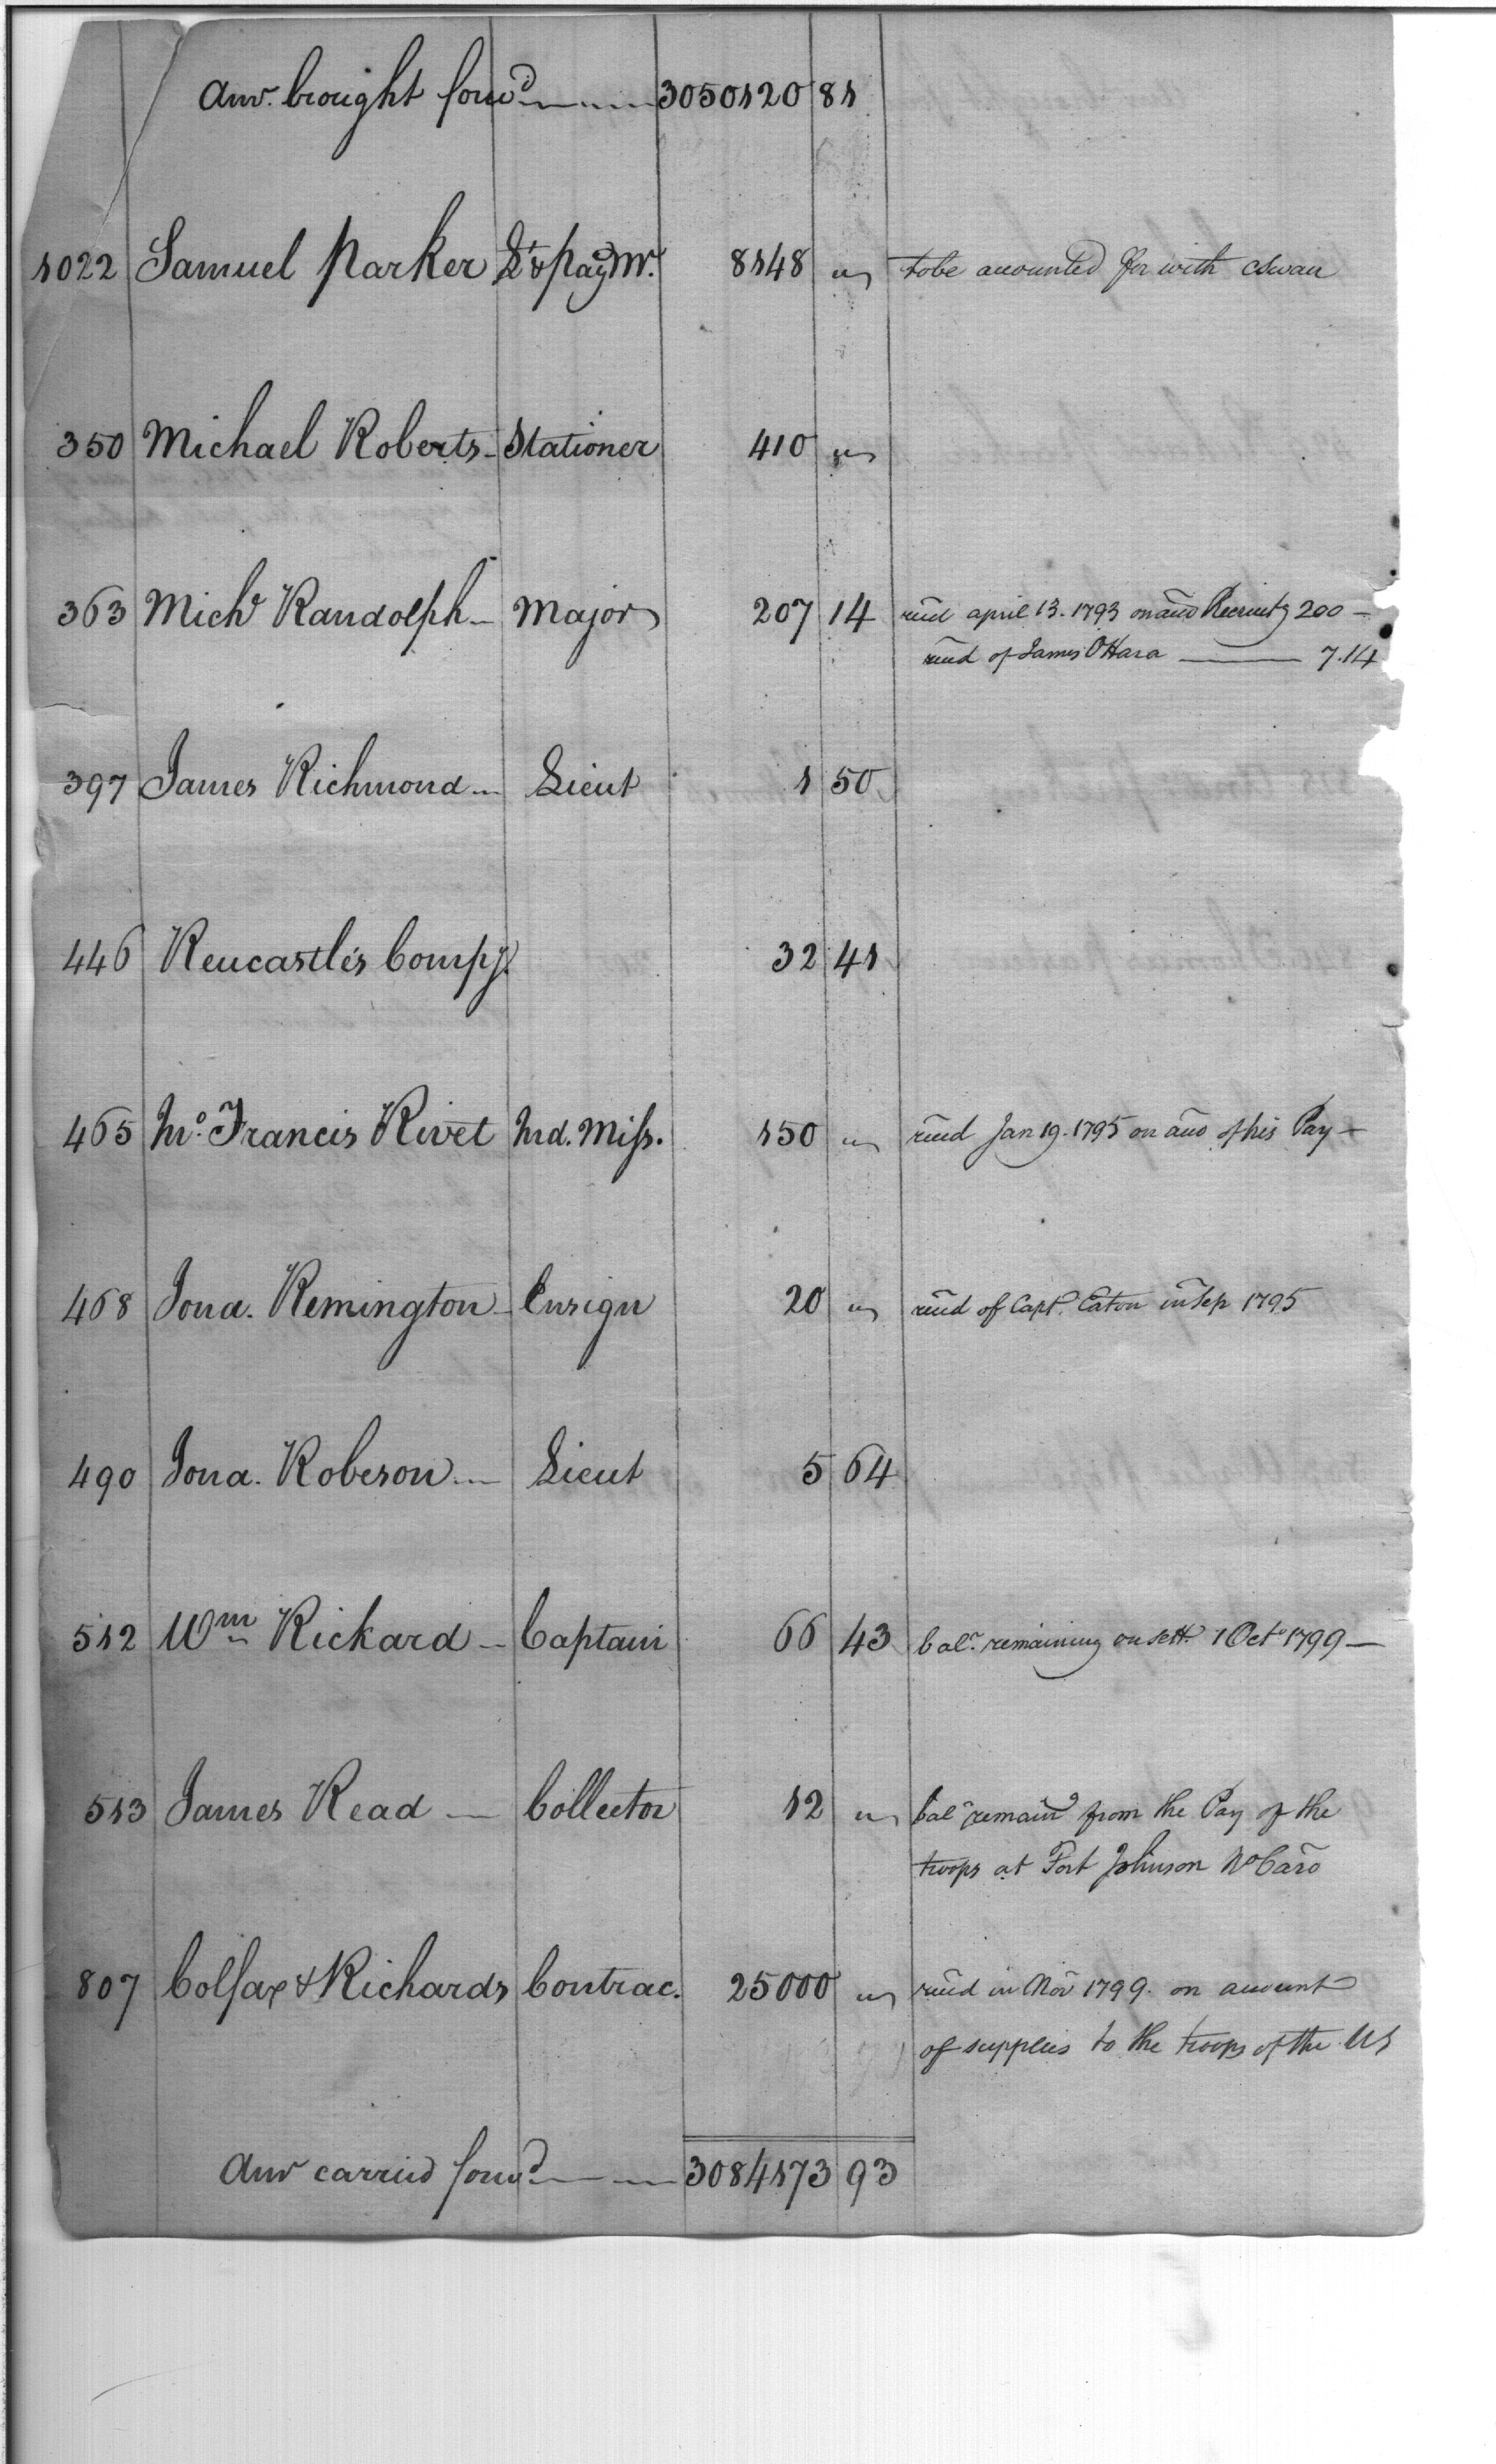 Amt. brought forwd 3050120 81
1022 Samuel Parker Lt & PayMr. 8148 " to be accounted for with CSwan
350 Michael Roberts Stationer 410 "
363 Michl Randolph Major 207 14 recd april 13. 1793 on acco Recruitg 200 —
recd of James OHara — 7.14
397 James Richmond Lieut 1 50
446 Reucastle's Compy. 32 41
465 Mr. Francis Rivet Ind. Miss. 150 " recd Jan 19. 1795 on acco of his Pay —
468 Jona. Remington Ensign 20 " recd of Capt. Eaton in Sep 1795
490 Jona. Roberson Lieut 5 64
512 Wm Rickard Captain 66 43 bale. remaining on sett. 1 Octo 1799 —
513 James Read Collector 12 " bale remaind from the Pay of the
troops at Fort Johnson No Caro
807 Colfax & Richards Contrac. 25000 " recd in Nov 1799. on account
of supplies to the troops of the US
Amt carried forwd 3084173 93